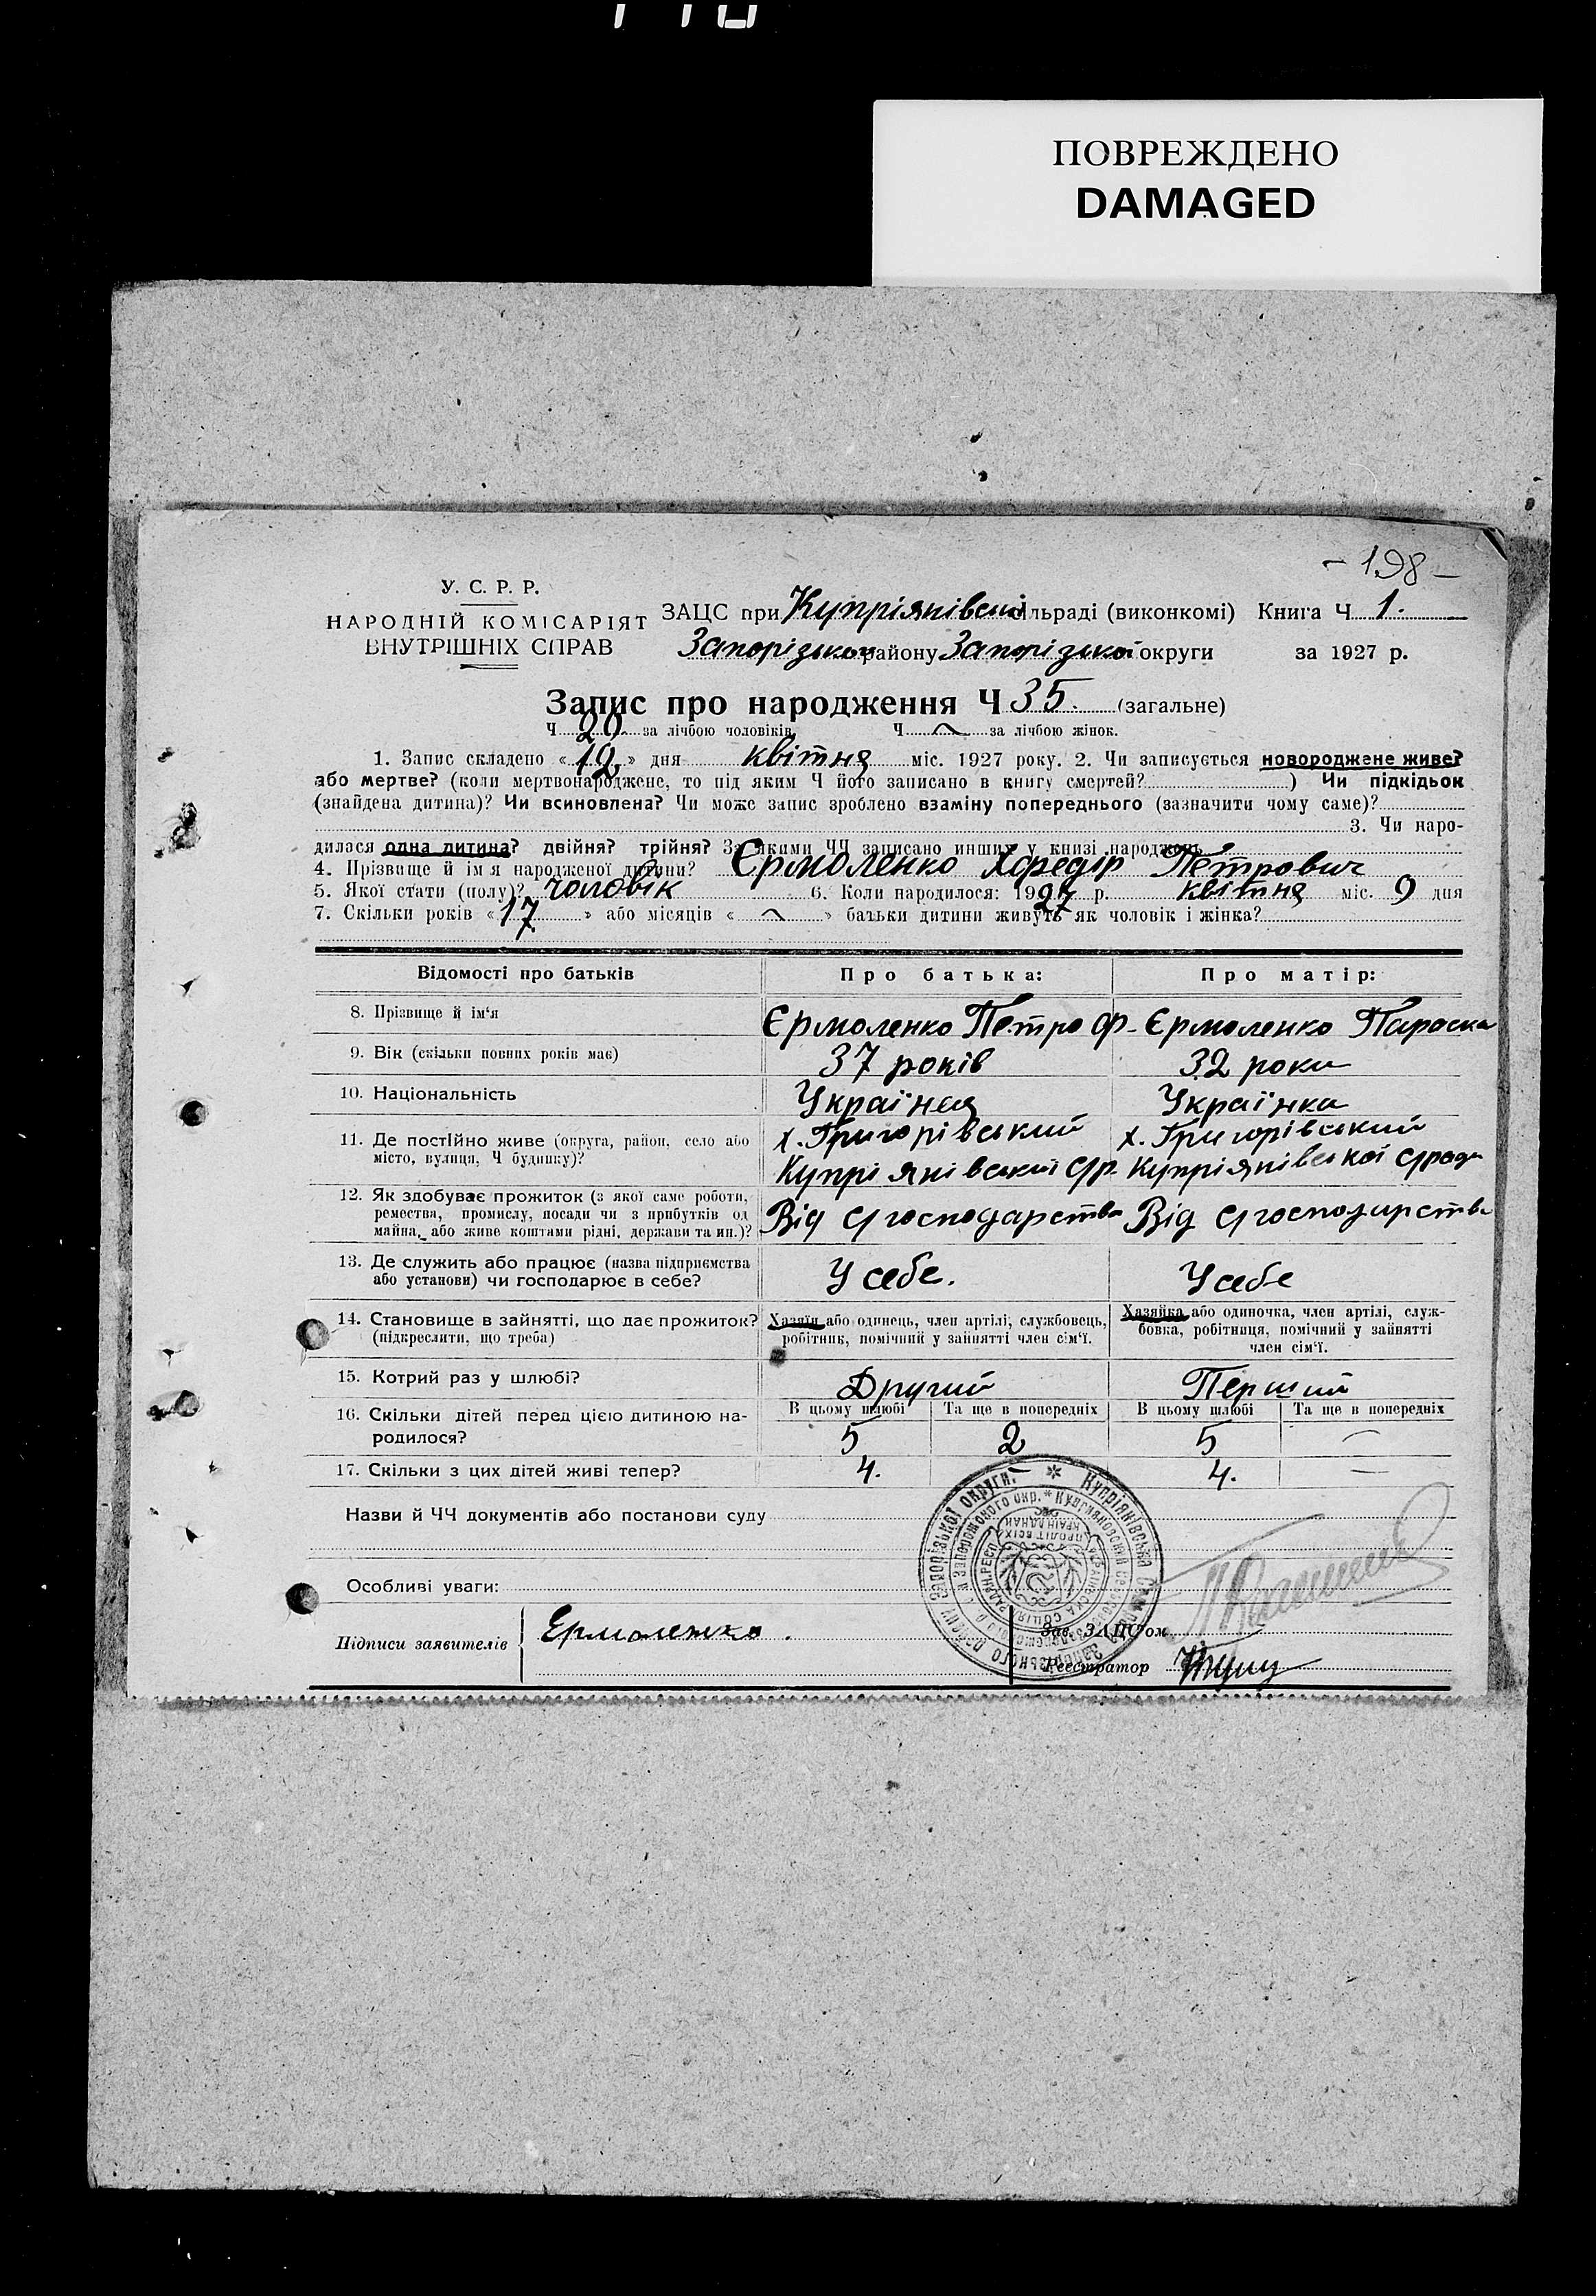 ПОВРЕЖДЕНО
DAMAGED
– 198 –
У. С. Р. Р.
НАРОДНІЙ КОМІСАРІЯТ
ВНУТРІШНІХ СПРАВ
ЗАЦС при Купріянівській сільраді (виконкомі) Книга Ч 1.
Запорізького району Запорізької округи за 1927 р.
Запис про народження Ч 35. (загальне)
Ч 20 за лічбою чоловіків. Ч — за лічбою жінок.
1. Запис складено « 12 » дня квітня міс. 1927 року. 2. Чи записується новороджене живе?
або мертве? (коли мертвонароджене, то під яким Ч його записано в книгу смертей? ) Чи підкідьок
(знайдена дитина)? Чи всиновлена? Чи може запис зроблено взаміну попереднього (зазначити чому саме)?
3. Чи наро-
дилася одна дитина? двійня? трійня? За якими ЧЧ записано инших у книзі народжень
4. Прізвище й ім'я народженої дитини? Єрмоленко Хведір Петрович
5. Якої стати (полу)? чоловік 6. Коли народилося: 1927 р. квітня міс. 9 дня
7. Скільки років « 17 » або місяців « — » батьки дитини живуть як чоловік і жінка?
Відомості про батьків Про батька: Про матір:
8. Прізвище й ім'я Єрмоленко Петро Ф- Єрмоленко Параска
9. Вік (скільки повних років має) 37 років 32 роки
10. Національність Українец Українка
11. Де постійно живе (округа, район, село або х. Григорівський х. Григорівський
місто, вулиця, Ч будинку)? Купріянівської с/р. Купріянівської с/ради
12. Як здобуває прожиток (з якої саме роботи,
ремества, промислу, посади чи з прибутків од Від с/господарства Від с/господарства
майна, або живе коштами рідні, держави та ин.)?
13. Де служить або працює (назва підприємства У себе. У себе
або установи) чи господарює в себе?
14. Становище в зайнятті, що дає прожиток? Хазяїн або одинець, член артілі, службовець, Хазяйка або одиночка, член артілі, служ-
(підкреслити, що треба) робітник, помічний у зайнятті член сім'ї. бовка, робітниця, помічний у зайнятті
член сім'ї.
15. Котрий раз у шлюбі? Другий Перший
16. Скільки дітей перед цією дитиною на- В цьому шлюбі Та ще в попередніх В цьому шлюбі Та ще в попередніх
родилося? 5 2 5 —
17. Скільки з цих дітей живі тепер? 4. – 4. —
Назви й ЧЧ документів або постанови суду
Особливі уваги:
Підписи заявителів Ермоленко.
Зав. ЗАЦС'ом
Реєстратор